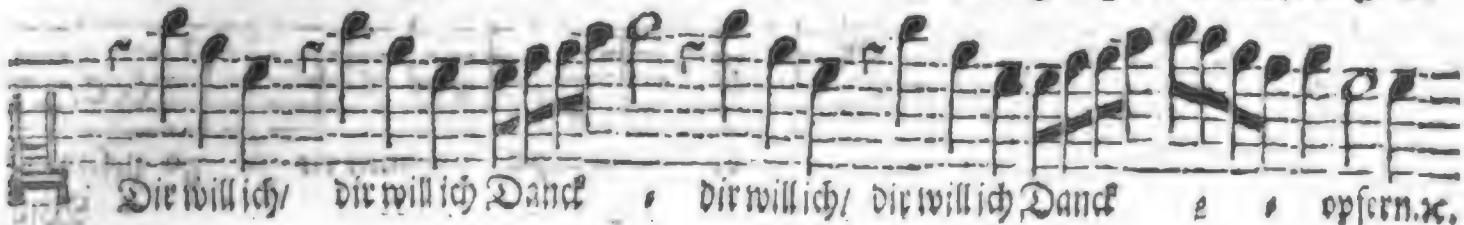 Dir will ich/ dir will ich Danck ⸗ dir will ich/ dir will ich Danck ⸗ ⸗ opfern.ꝛc.